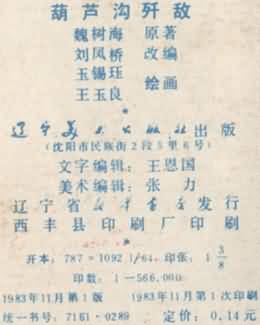 葫芦沟歼敌
魏树海 原著
刘凤桥 改编
玉锡珏
王玉良 绘画
辽宁美术出版社出版
(沈阳市民族街2段5里6号)
文字编辑：王恩国
美术编辑：张力
辽宁省新华书店发行
西丰县印刷厂印刷
开本：787×1092 1/64 印张：1 3/8
印数：1—566,000
1983年11月第1版 1983年11月第1次印刷
统一书号：7161·0289 定价：0.14元